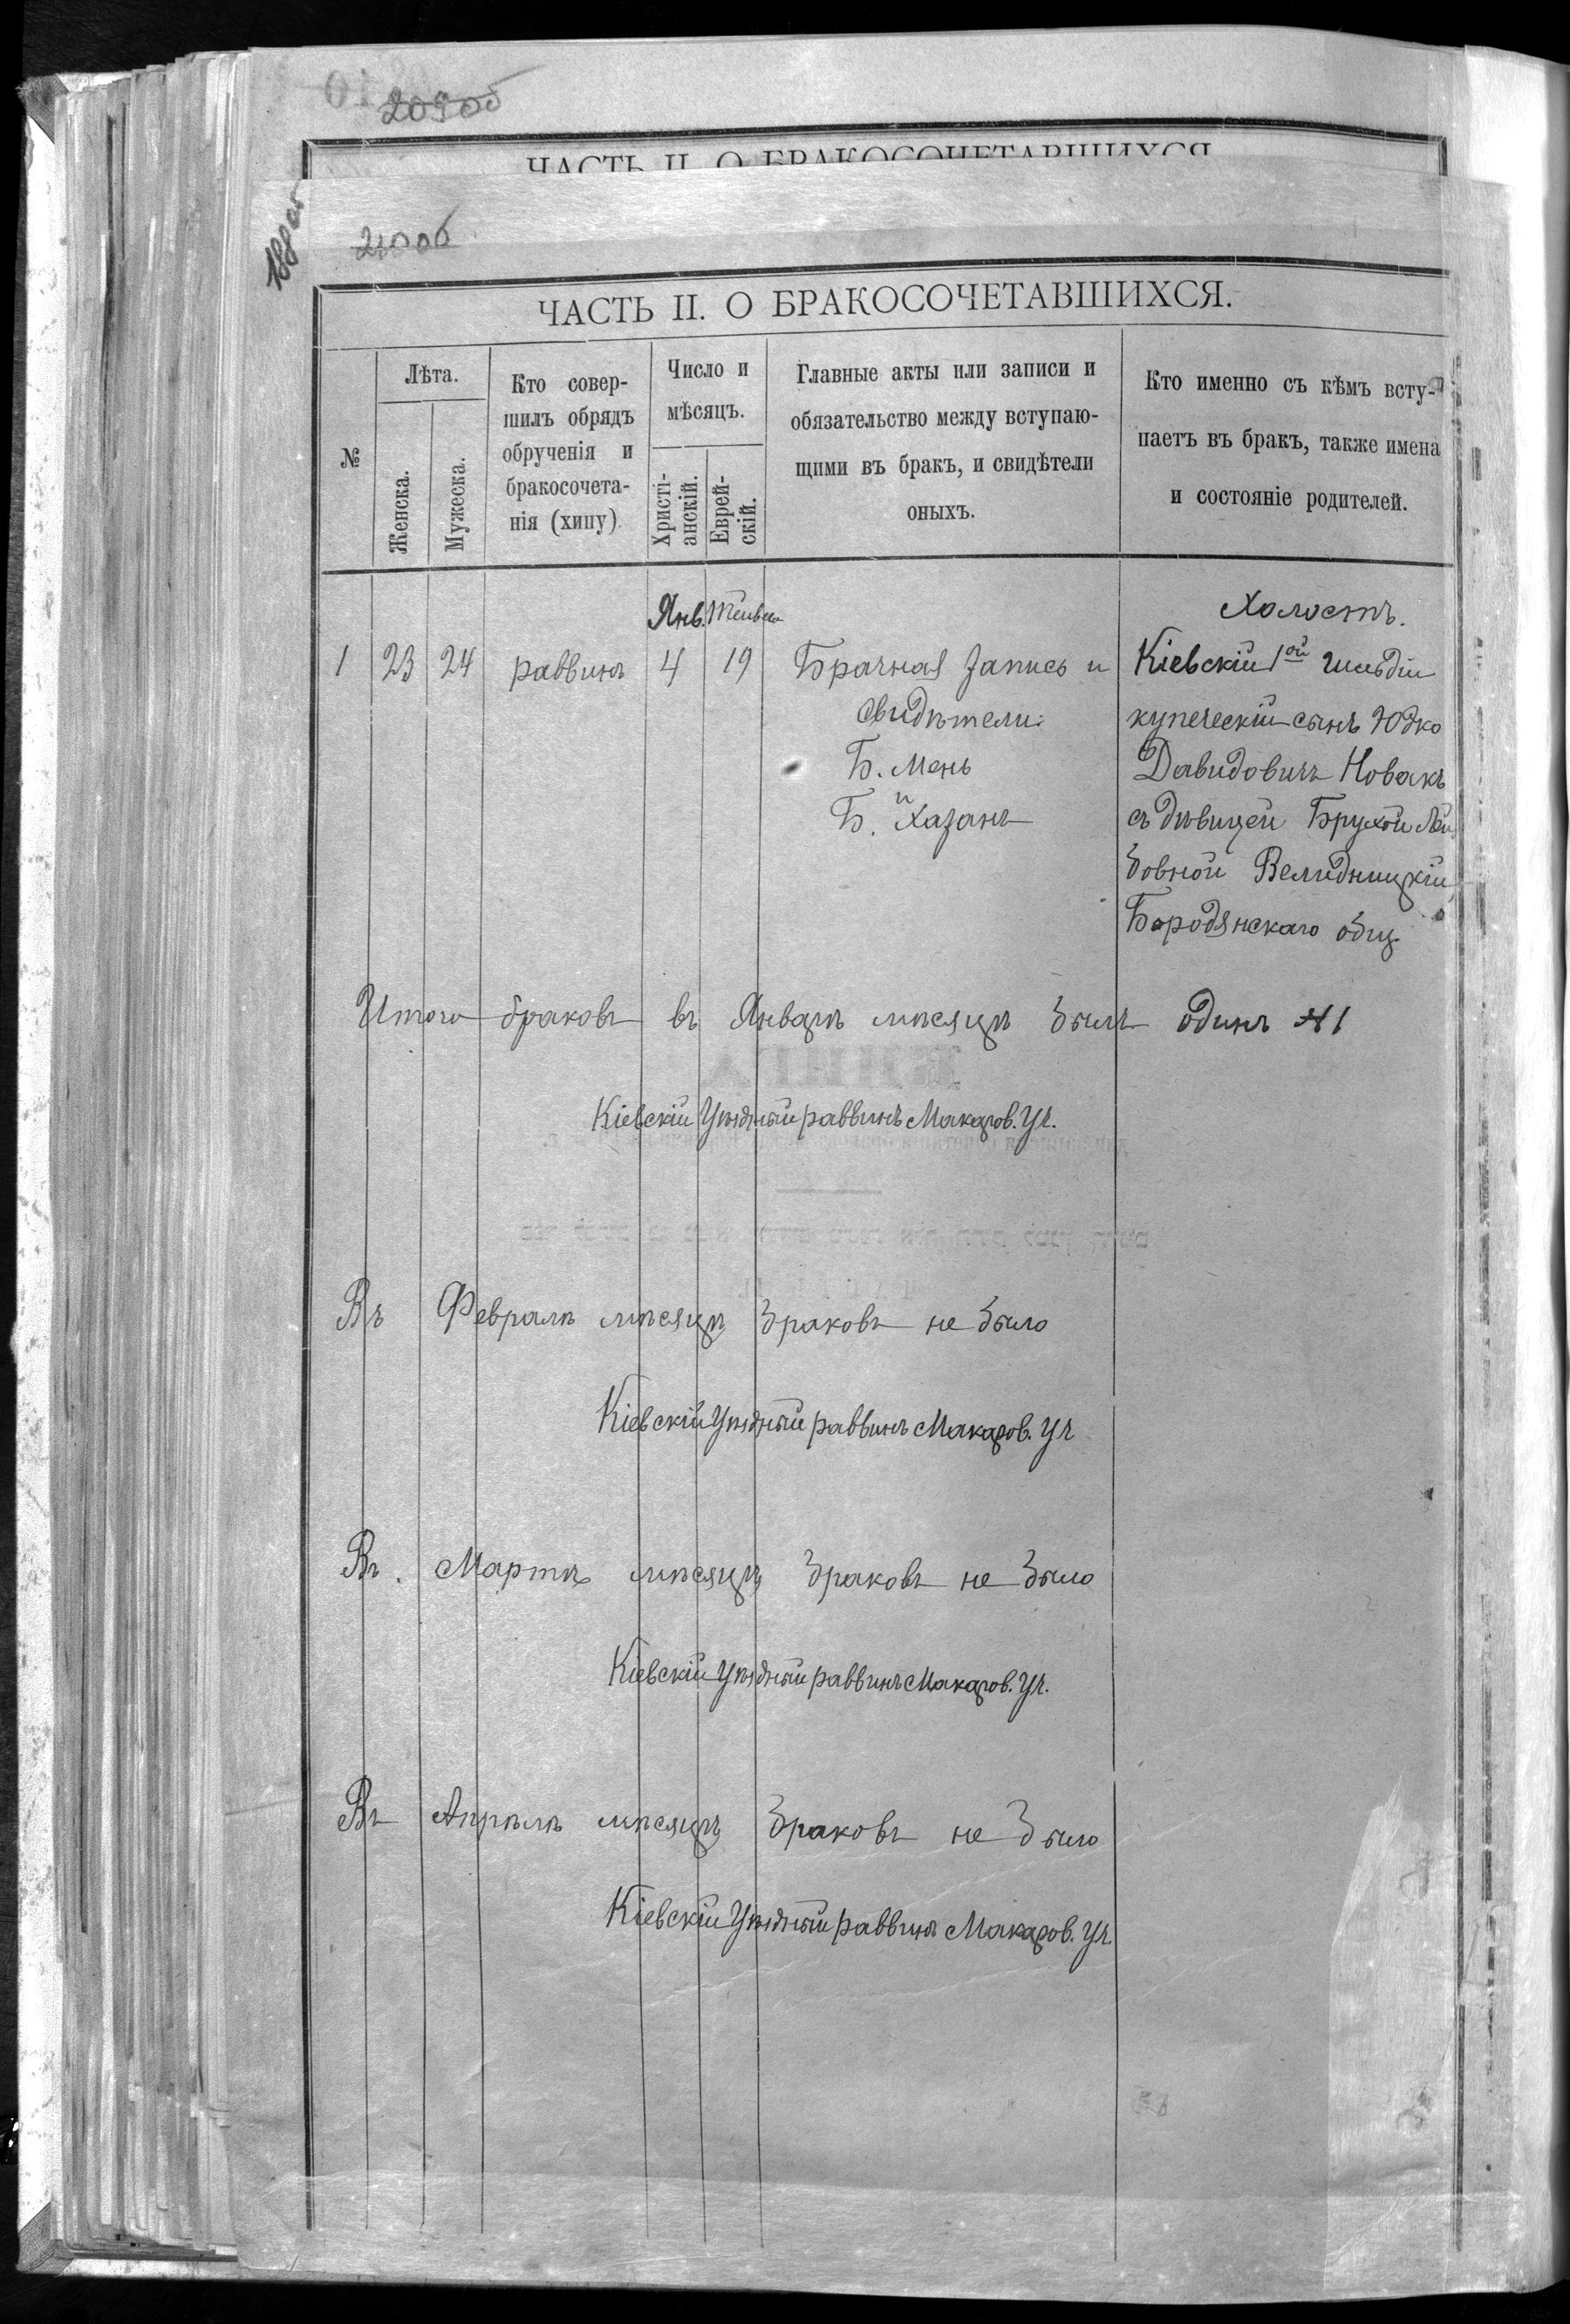 209об
ЧАСТЬ II. О БРАКОСОЧЕТАВШИХСЯ
188об
210об
ЧАСТЬ II. О БРАКОСОЧЕТАВШИХСЯ.
№
Лѣта.
Женска.
Мужеска.
Кто совер-
шилъ обрядъ
обрученія и
бракосочета-
нія (хипу)
Число и
мѣсяцъ.
Христі-
анскій.
Еврей-
скій.
Главные акты или записи и
обязательство между вступаю-
щими въ бракъ, и свидѣтели
оныхъ.
Кто именно съ кѣмъ всту-
паетъ въ бракъ, также имена
и состояніе родителей.
Янв. Тейвеса
Холостъ.
1 23 24 раввинъ 4 19 Брачная запись и
свидѣтели:
Б. Мень
и
Б. Хазанъ
Кіевскій 1ой гильдіи
купеческій сынъ Юдко
Давидовичъ Новакъ
съ дѣвицей Брухой Лей
бовной Велидницкій
Бородянскаго общ
Итого браковъ въ Январѣ мѣсяцѣ былъ одинъ №1
Кіевскій Уѣздный раввинъ Макаров. Уч.
Въ Февралѣ мѣсяцѣ браковъ не было
Кіевскій Уѣздный раввинъ Макаров. Уч
Въ. Мартѣ мѣсяцѣ браковъ не было
Кіевскій Уѣздный раввинъ Макаров. Уч.
Въ Апрѣлѣ мѣсяцѣ браковъ не было
Кіевскій Уѣздный раввинъ Макаров. Уч.